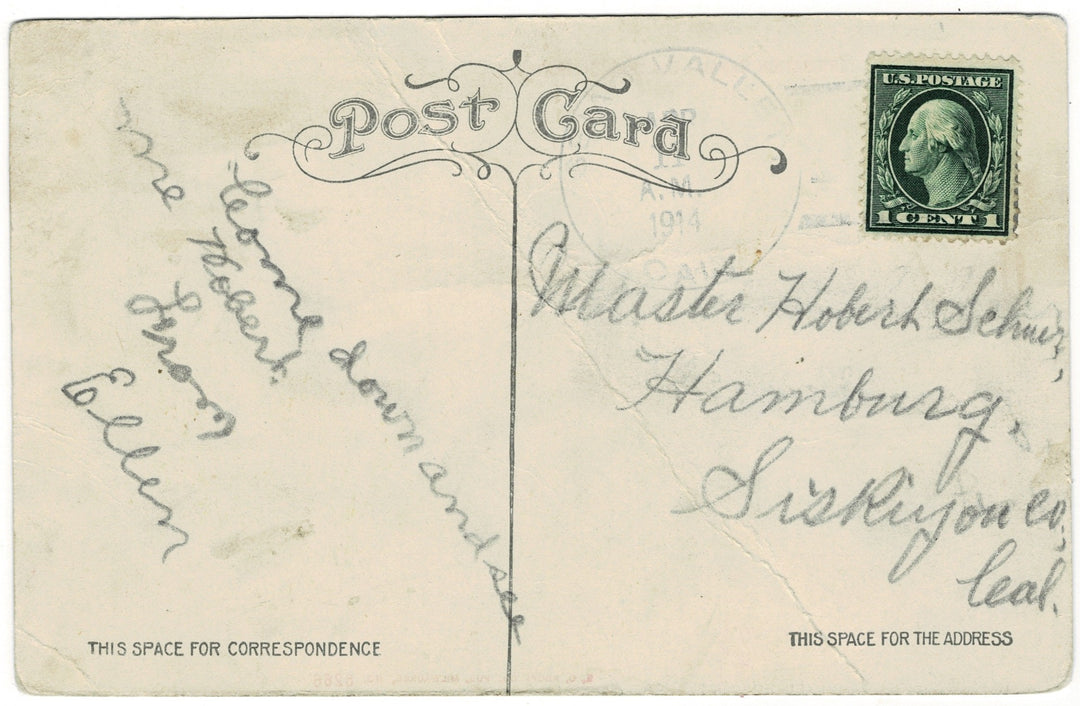 Post Card
VALL
A.M.
1914
CAL
U.S. POSTAGE
1 CENT 1
Come down and see
me Hobert.
From
Ellen
Master Hobert
Hamburg,
Siskiyou Co,
Cal.
THIS SPACE FOR CORRESPONDENCE
THIS SPACE FOR THE ADDRESS